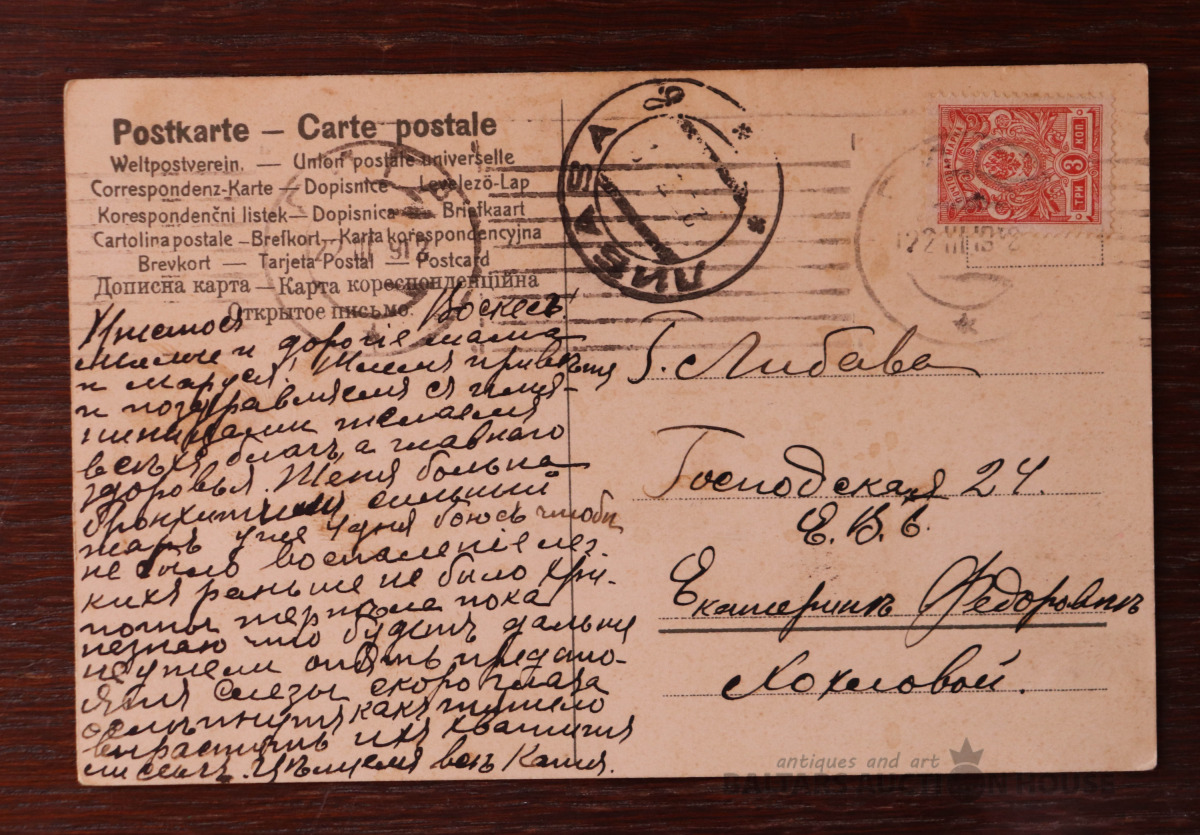 Postkarte – Carte postale
Weltpostverein. — Union postale universelle
Correspondenz-Karte — Dopisnice — Levelező-Lap
Korespondenční listek — Dopisnica — Briefkaart
Cartolina postale – Brefkort – Karta korespondencyjna
Brevkort — Tarjeta Postal — Postcard
Дописна карта — Карта кореспонденційна
Открытое письмо.
ЛИБАВА
3 КОП.
ТРИ
Христосъ Воскесъ!
милые и дорогіе мама
и Маруся! Шлемъ привѣтъ
и поздравляемъ съ имя-
нинами желаемъ
всѣхъ благъ, а главнаго
здоровья. Женя больна
бронхитомъ сильный
жаръ уже 4 дня боюсь чтобы
не было воспаленіе лег.
кихъ раньше не было хри-
поты теперь пока
незнаю что будетъ дальше
неужели опять предсто-
ятъ слезы скоро глаза
какъ тяжело
вырастить ихъ
Цѣлуемъ всѣ Катя.
Г. Либава
Господская 24.
Е. В. Б.
Екатеринѣ Федоровнѣ
Хохловой.
antiques and art
BALTARS AUCTION HOUSE